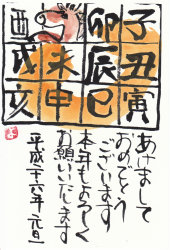 子丑寅
卯辰巳
未申
酉戌亥
あけまして
おめでとう
ございます
本年もよろしく
お願いいたします
平成二十六年 元旦